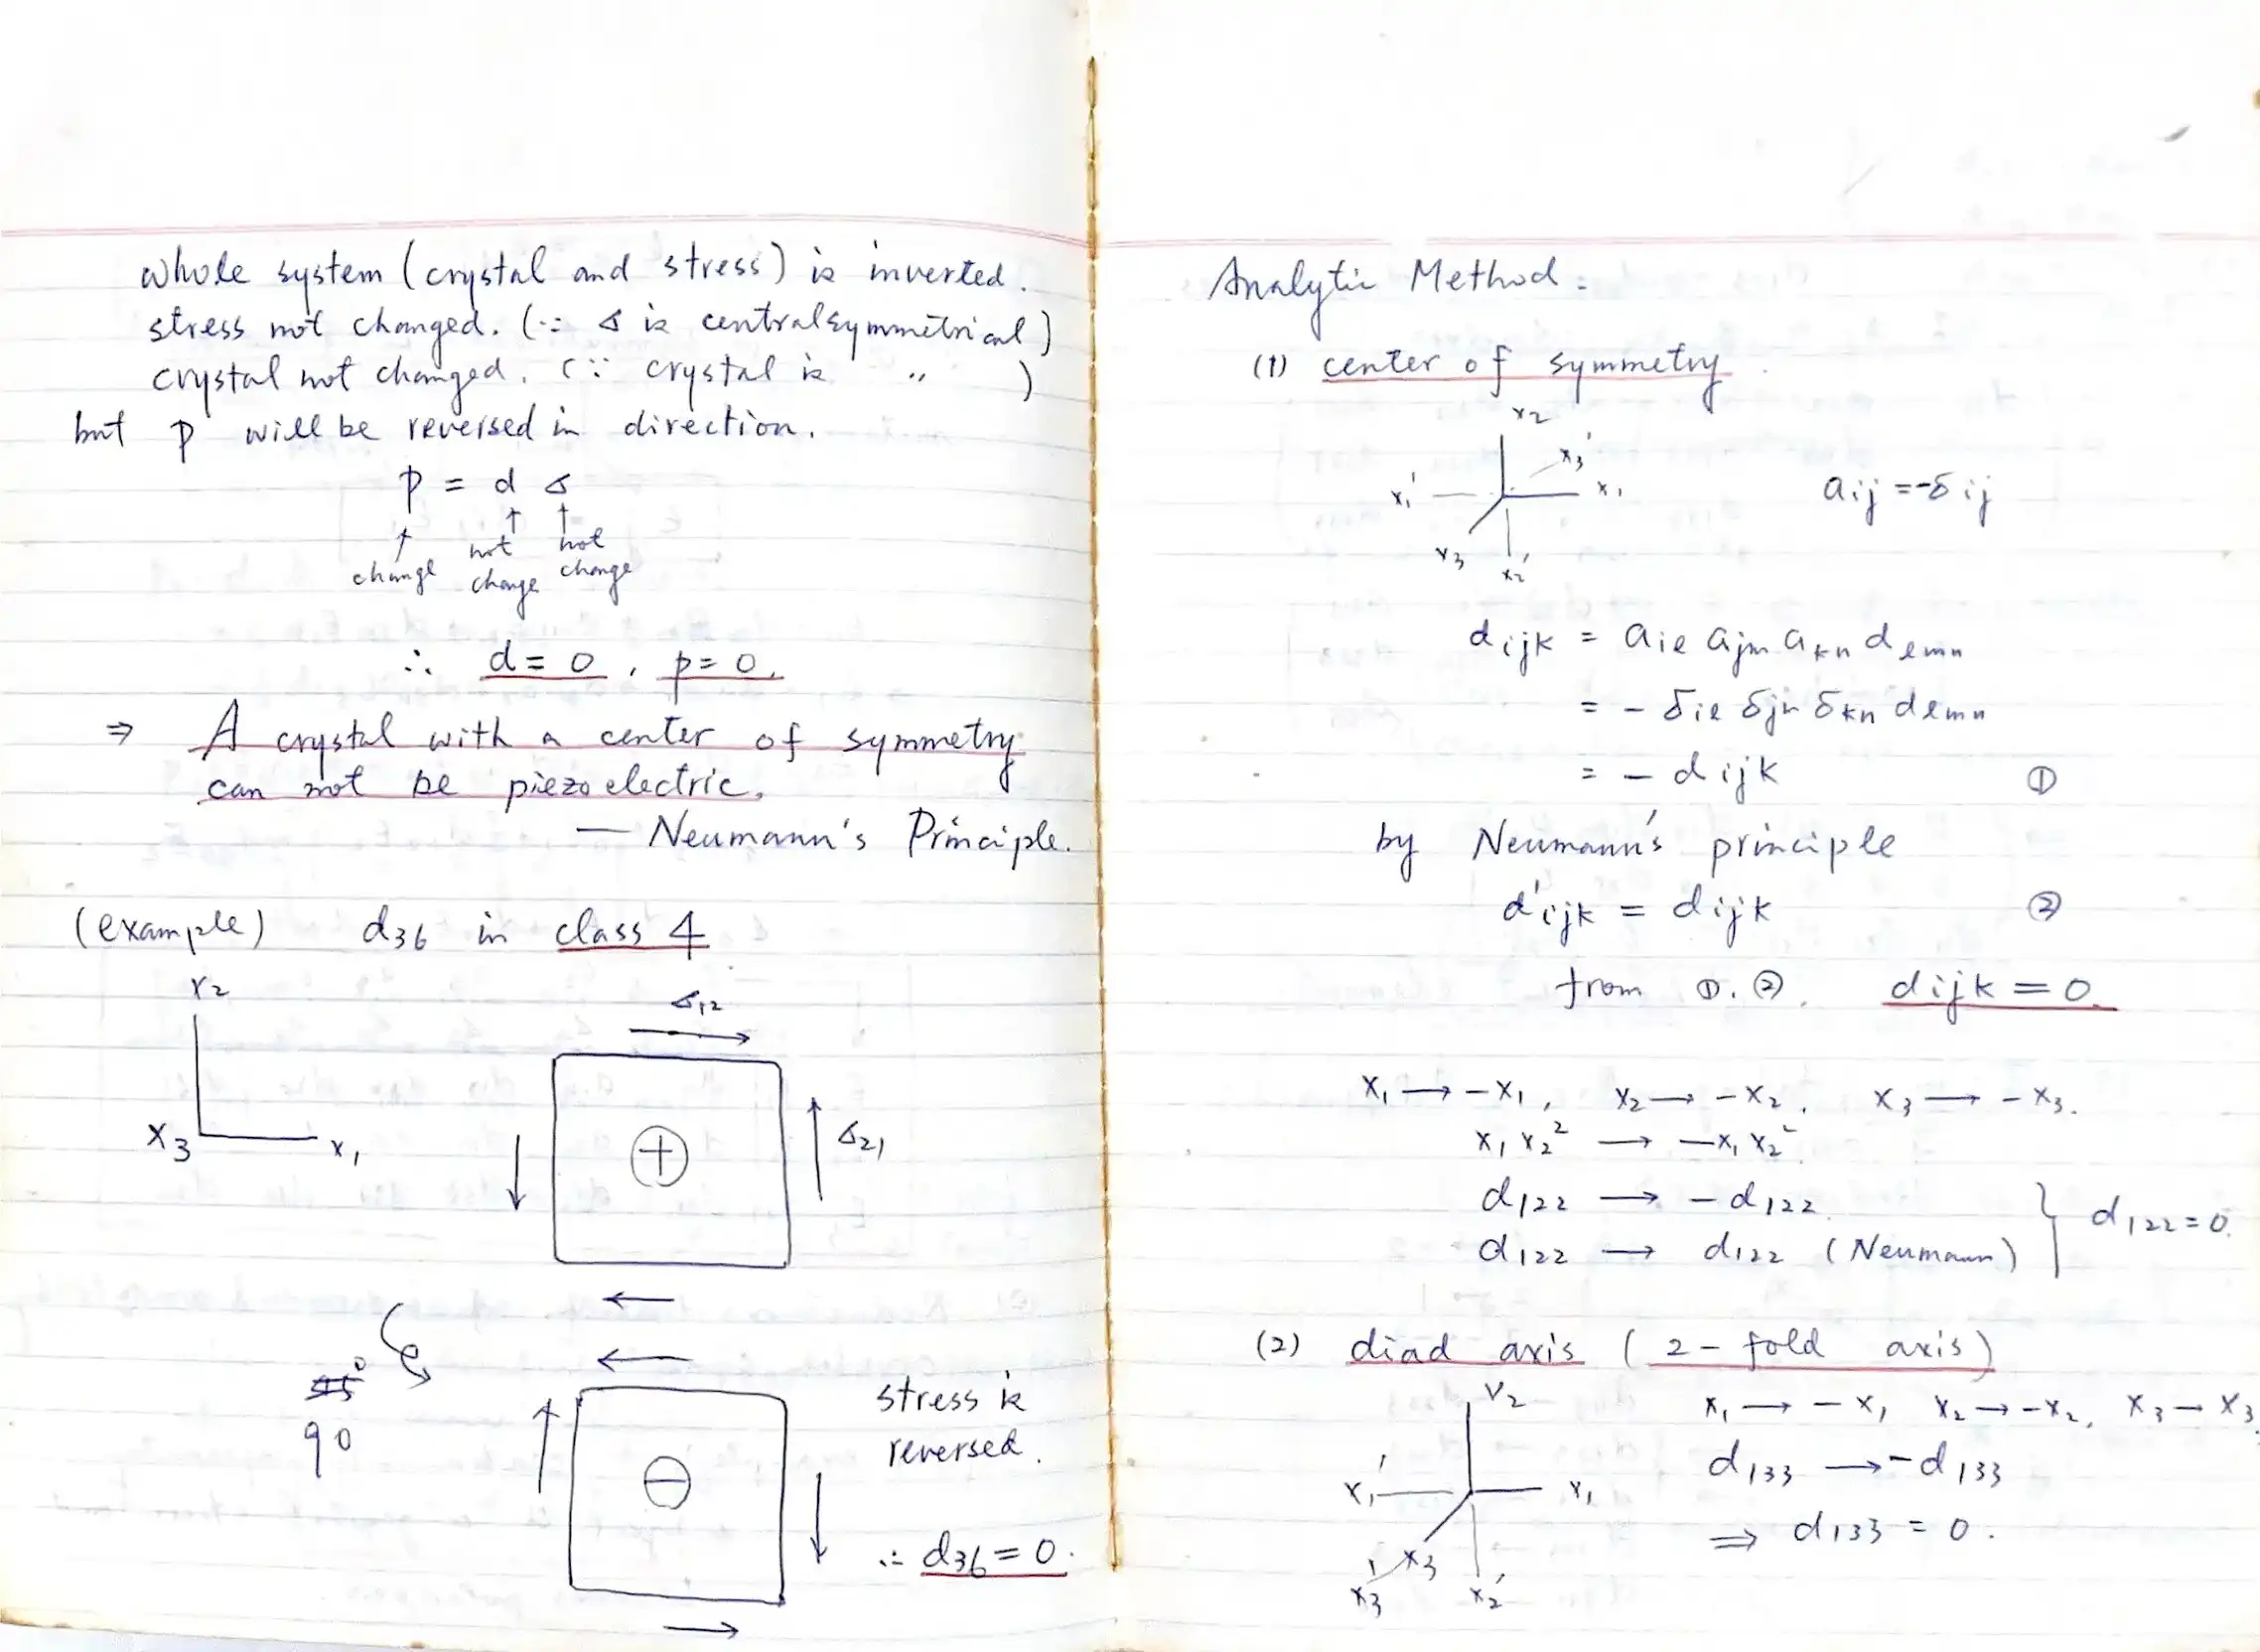 whole system (crystal and stress) is inverted.
stress not changed. (∵ σ is centralsymmetrical)
crystal not changed. (∵ crystal is 〃 )
but p will be reversed in direction.
p = d σ
↑ ↑ ↑
change not change not change
∴ d = 0, p = 0.
⇒ A crystal with a center of symmetry
can not be piezoelectric.
— Neumann's Principle.
(example) d36 in class 4
x2
x3 x1
σ12
+
σ21
45°
90
−
stress is
reversed.
∴ d36 = 0.
Analytic Method.
(1) center of symmetry
x2
x3'
x1' x1
x3
x2'
aij = -δij
dijk = ail ajm akn dlmn
= - δil δjm δkn dlmn
= - dijk ①
by Neumann's principle
d'ijk = dijk ②
from ①. ②. dijk = 0.
x1 → -x1, x2 → -x2, x3 → -x3.
x1 x2² → -x1 x2²
d122 → -d122
d122 → d122 (Neumann) } d122 = 0.
(2) diad axis (2-fold axis)
x1 → -x1 x2 → -x2, x3 → x3.
x2
x1' x1
x3
x3' x2'
d133 → -d133
⇒ d133 = 0.